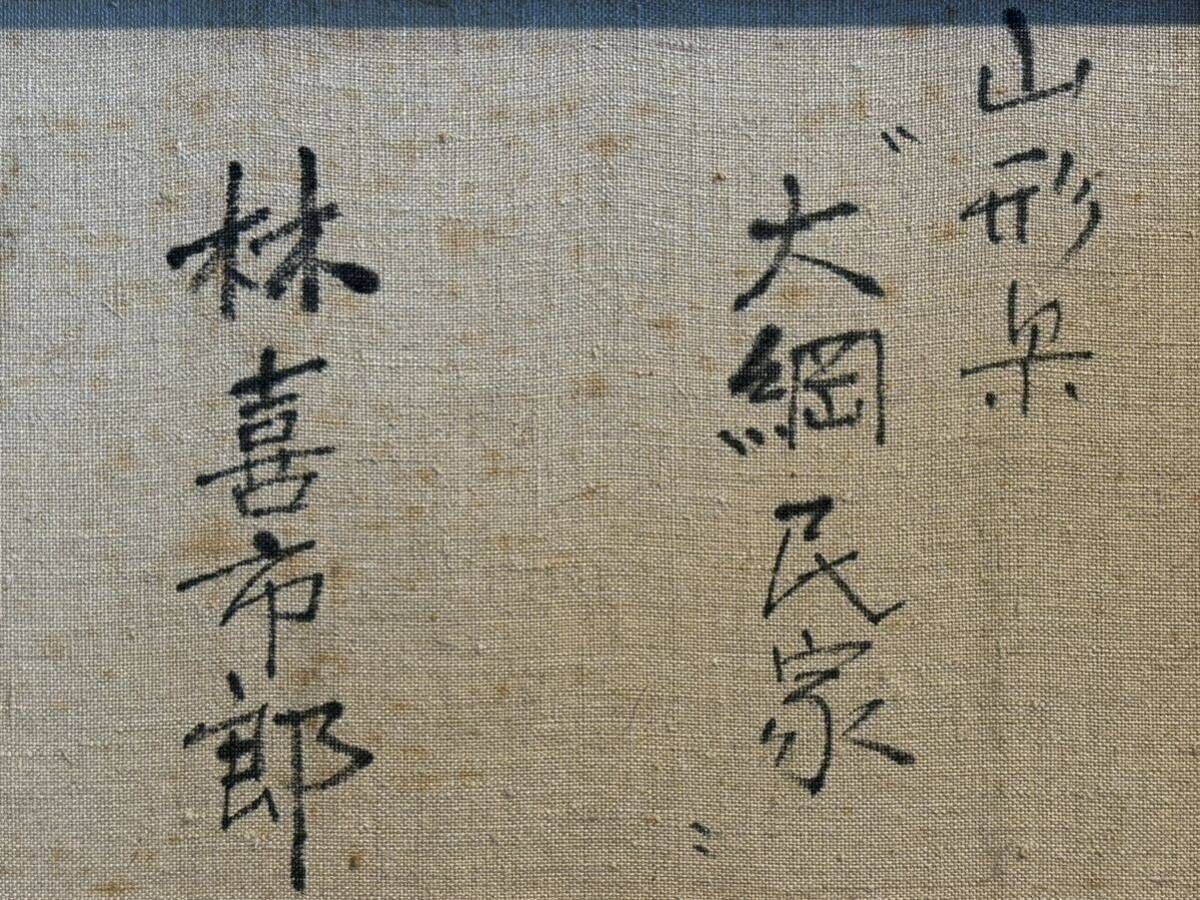 山形県
〃大網民家〃
林喜市郎